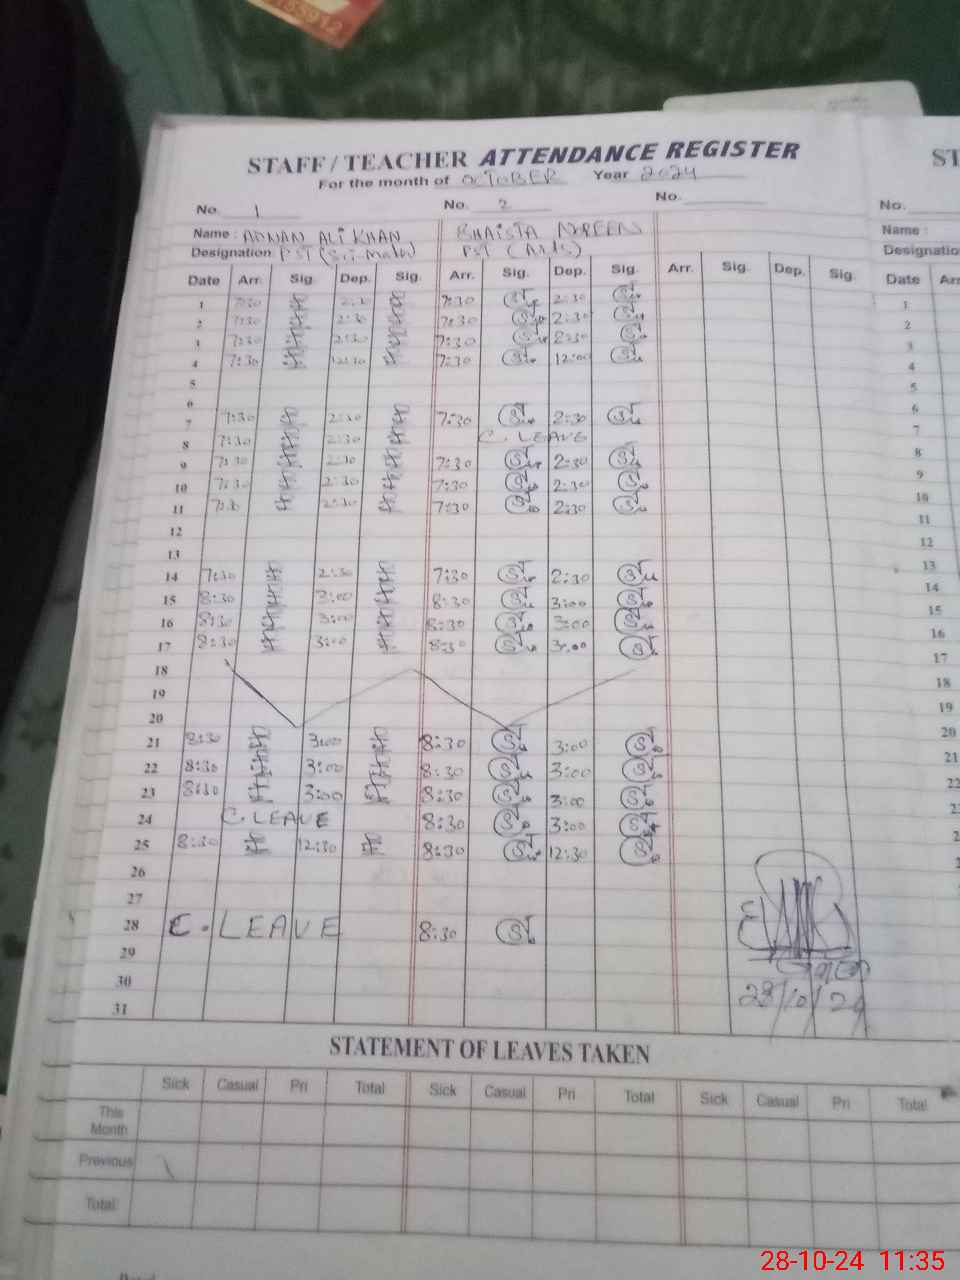 STAFF / TEACHER ATTENDANCE REGISTER
For the month of OCTOBER Year 2024
No. 1 No. 2 No.
Name : ADNAN ALI KHAN SHAISTA NOREEN
Designation: PST (Sci-Math) PST (Arts)
Date Arr. Sig. Dep. Sig. Arr. Sig. Dep. Sig. Arr. Sig. Dep. Sig.
1 7:30 2:30 7:30 2:30
2 7:30 2:30 7:30 2:30
3 7:30 2:30 7:30 2:30
4 7:30 12:30 7:30 12:00
5
6
7 7:30 2:30 7:30 2:30
8 7:30 2:30 C. LEAVE
9 7:30 2:30 7:30 2:30
10 7:30 2:30 7:30 2:30
11 7:30 2:30 7:30 2:30
12
13
14 7:30 2:30 7:30 2:30
15 8:30 3:00 8:30 3:00
16 8:30 3:00 8:30 3:00
17 8:30 3:00 8:30 3:00
18
19
20
21 8:30 3:00 8:30 3:00
22 8:30 3:00 8:30 3:00
23 8:30 3:00 8:30 3:00
24 C. LEAVE 8:30 3:00
25 8:30 12:30 8:30 12:30
26
27
28 C. LEAVE 8:30
29
30
31
28/10/24
STATEMENT OF LEAVES TAKEN
Sick Casual Pri Total Sick Casual Pri Total Sick Casual Pri Total
This
Month
Previous
Total
ST
No.
Name :
Designatio
Date Arr
1
2
3
4
5
6
7
8
9
10
11
12
13
14
15
16
17
18
19
20
21
22
28-10-24 11:35